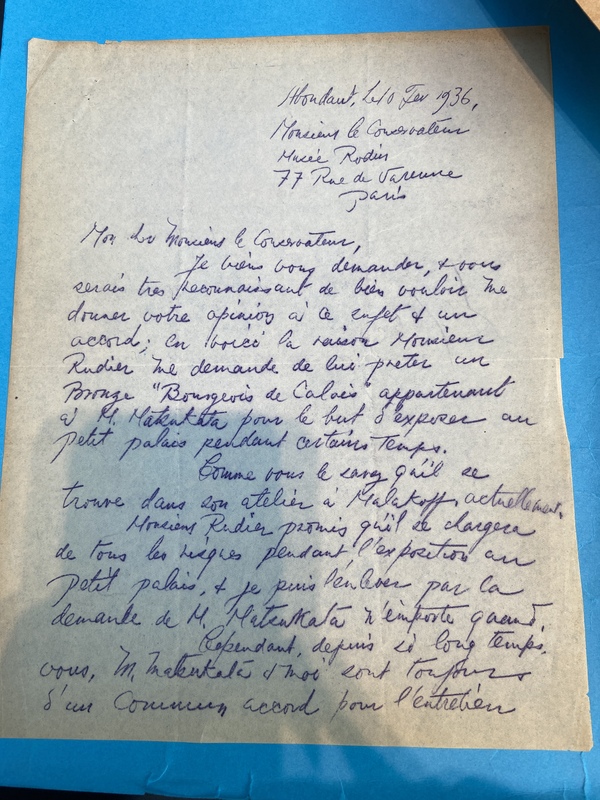 Abondant, Le 10 Fev 1936,
Monsieur le Conservateur
Musée Rodin
77 Rue de Varenne
Paris
Mon Monsieur le Conservateur,
Je viens vous demander, & vous
serais tres reconnaissant de bien vouloir me
donner votre opinion à ce sujet & un
accord; En voici la raison Monsieur
Rudier me demande de lui preter un
Bronze "Bourgeois de Calais" appartenant
à M. Matsukata pour le but d'exposer au
petit palais pendant certains temps.
Comme vous le savez qu'il se
trouve dans son atelier à Malakoff, actuellement.
Monsieur Rudier promis qu'il se chargera
de tous les risques pendant l'exposition au
petit palais, & je puis l'enlever par la
demande de M. Matsukata n'importe quand.
Cependant, depuis si long temps,
vous, M. Matsukata & moi sont toujours
d'un commun accord pour l'entretien